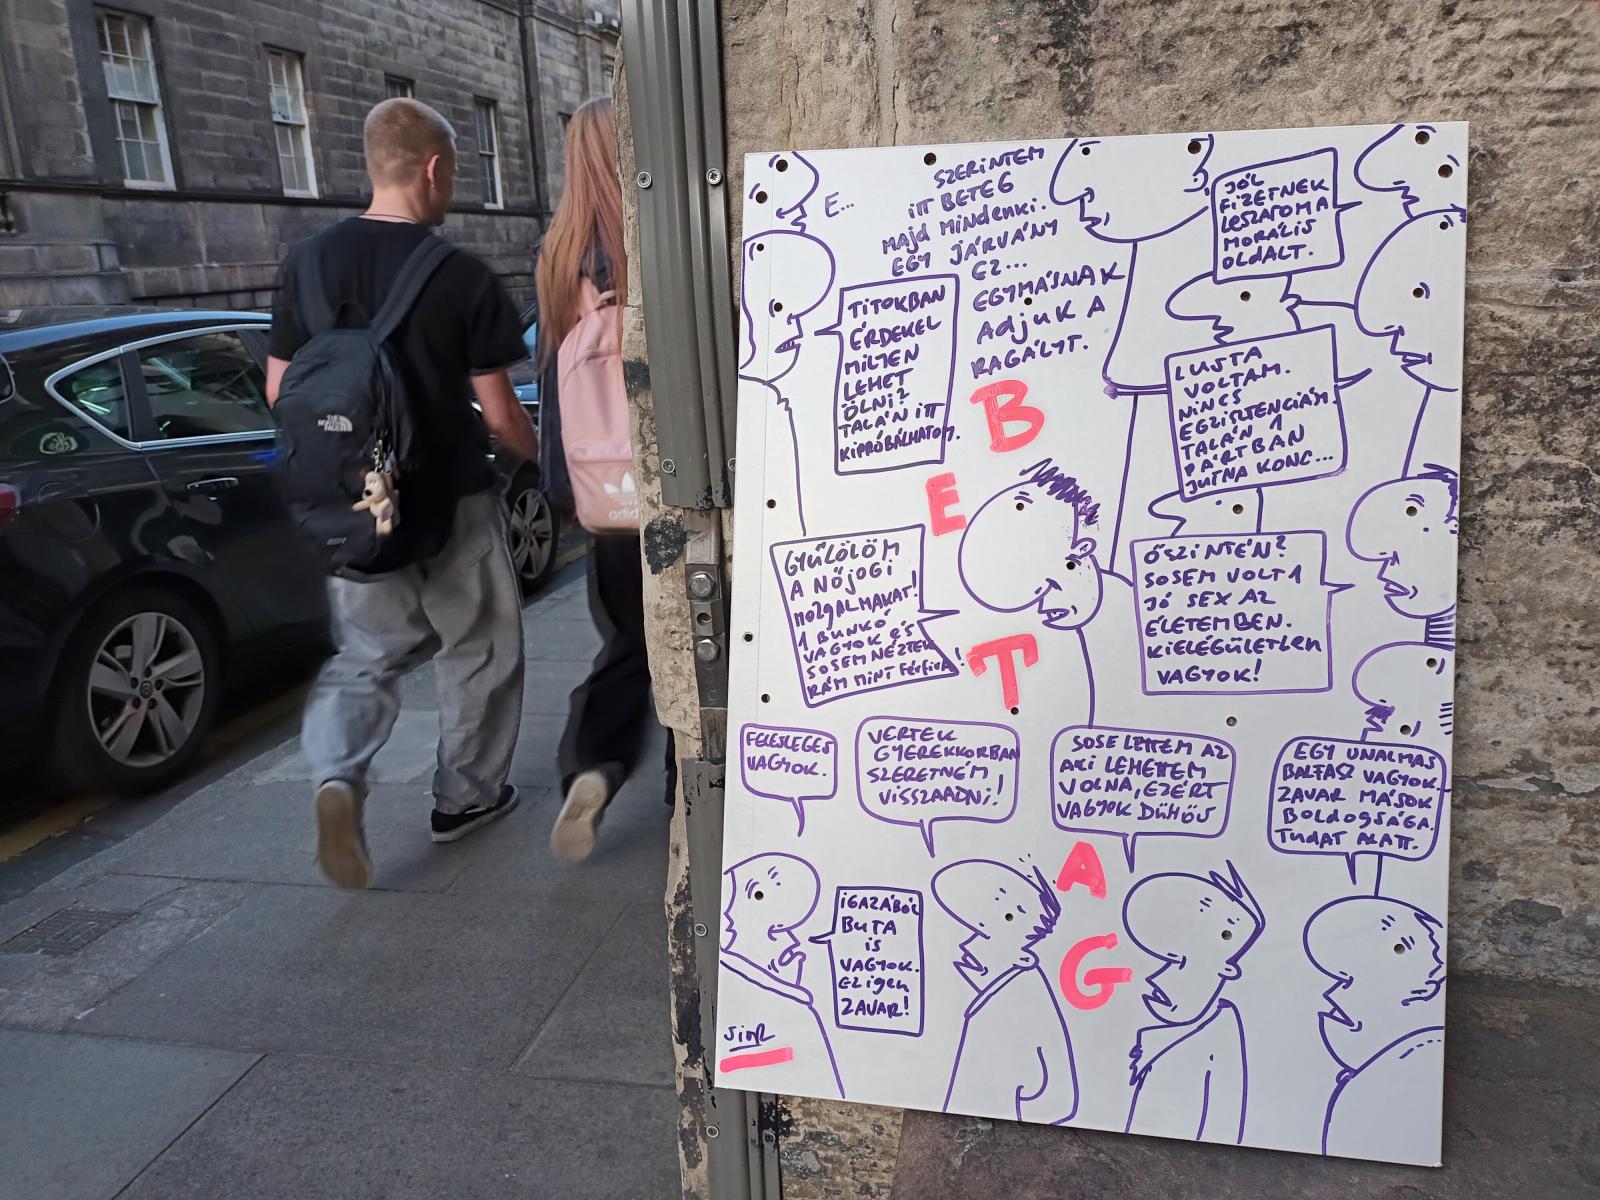 E...
SZERINTEM
ITT BETEG
MAJD MINDENKI.
EGY JÁRVÁNY
EZ...
EGYMÁSNAK
ADJUK A
RAGÁLYT.
JÓL
FIZETNEK
LESZAROM A
MORÁLIS
OLDALT.
TITOKBAN
ÉRDEKEL
MILYEN
LEHET
ÖLNI?
TALÁN ITT
KIPRÓBÁLHATOM.
LUSTA
VOLTAM.
NINCS
EGZISZTENCIÁM.
TALÁN 1
PÁRTBAN
JUTNA KONC...
B
E
T
A
G
GYŰLÖLÖM
A NŐJOGI
MOZGALMAKAT!
1 BUNKÓ
VAGYOK ÉS
SOSEM NÉZTEK
RÁM MINT FÉRFIRA!
ŐSZINTÉN?
SOSEM VOLT 1
JÓ SEX AZ
ÉLETEMBEN.
KIELÉGÜLETLEN
VAGYOK!
FELESLEGES
VAGYOK.
VERTEK
GYEREKKORBAN
SZERETNÉM
VISSZAADNI!
SOSE LETTEM AZ
AKI LEHETTEM
VOLNA, EZÉRT
VAGYOK DÜHÖS
EGY UNALMAS
BALFASZ VAGYOK
ZAVAR MÁSOK
BOLDOGSÁGA.
TUDAT ALATT.
IGAZÁBÓL
BUTA
IS
VAGYOK.
EZ IGEN
ZAVAR!
THE
NORTH
FACE
adidas